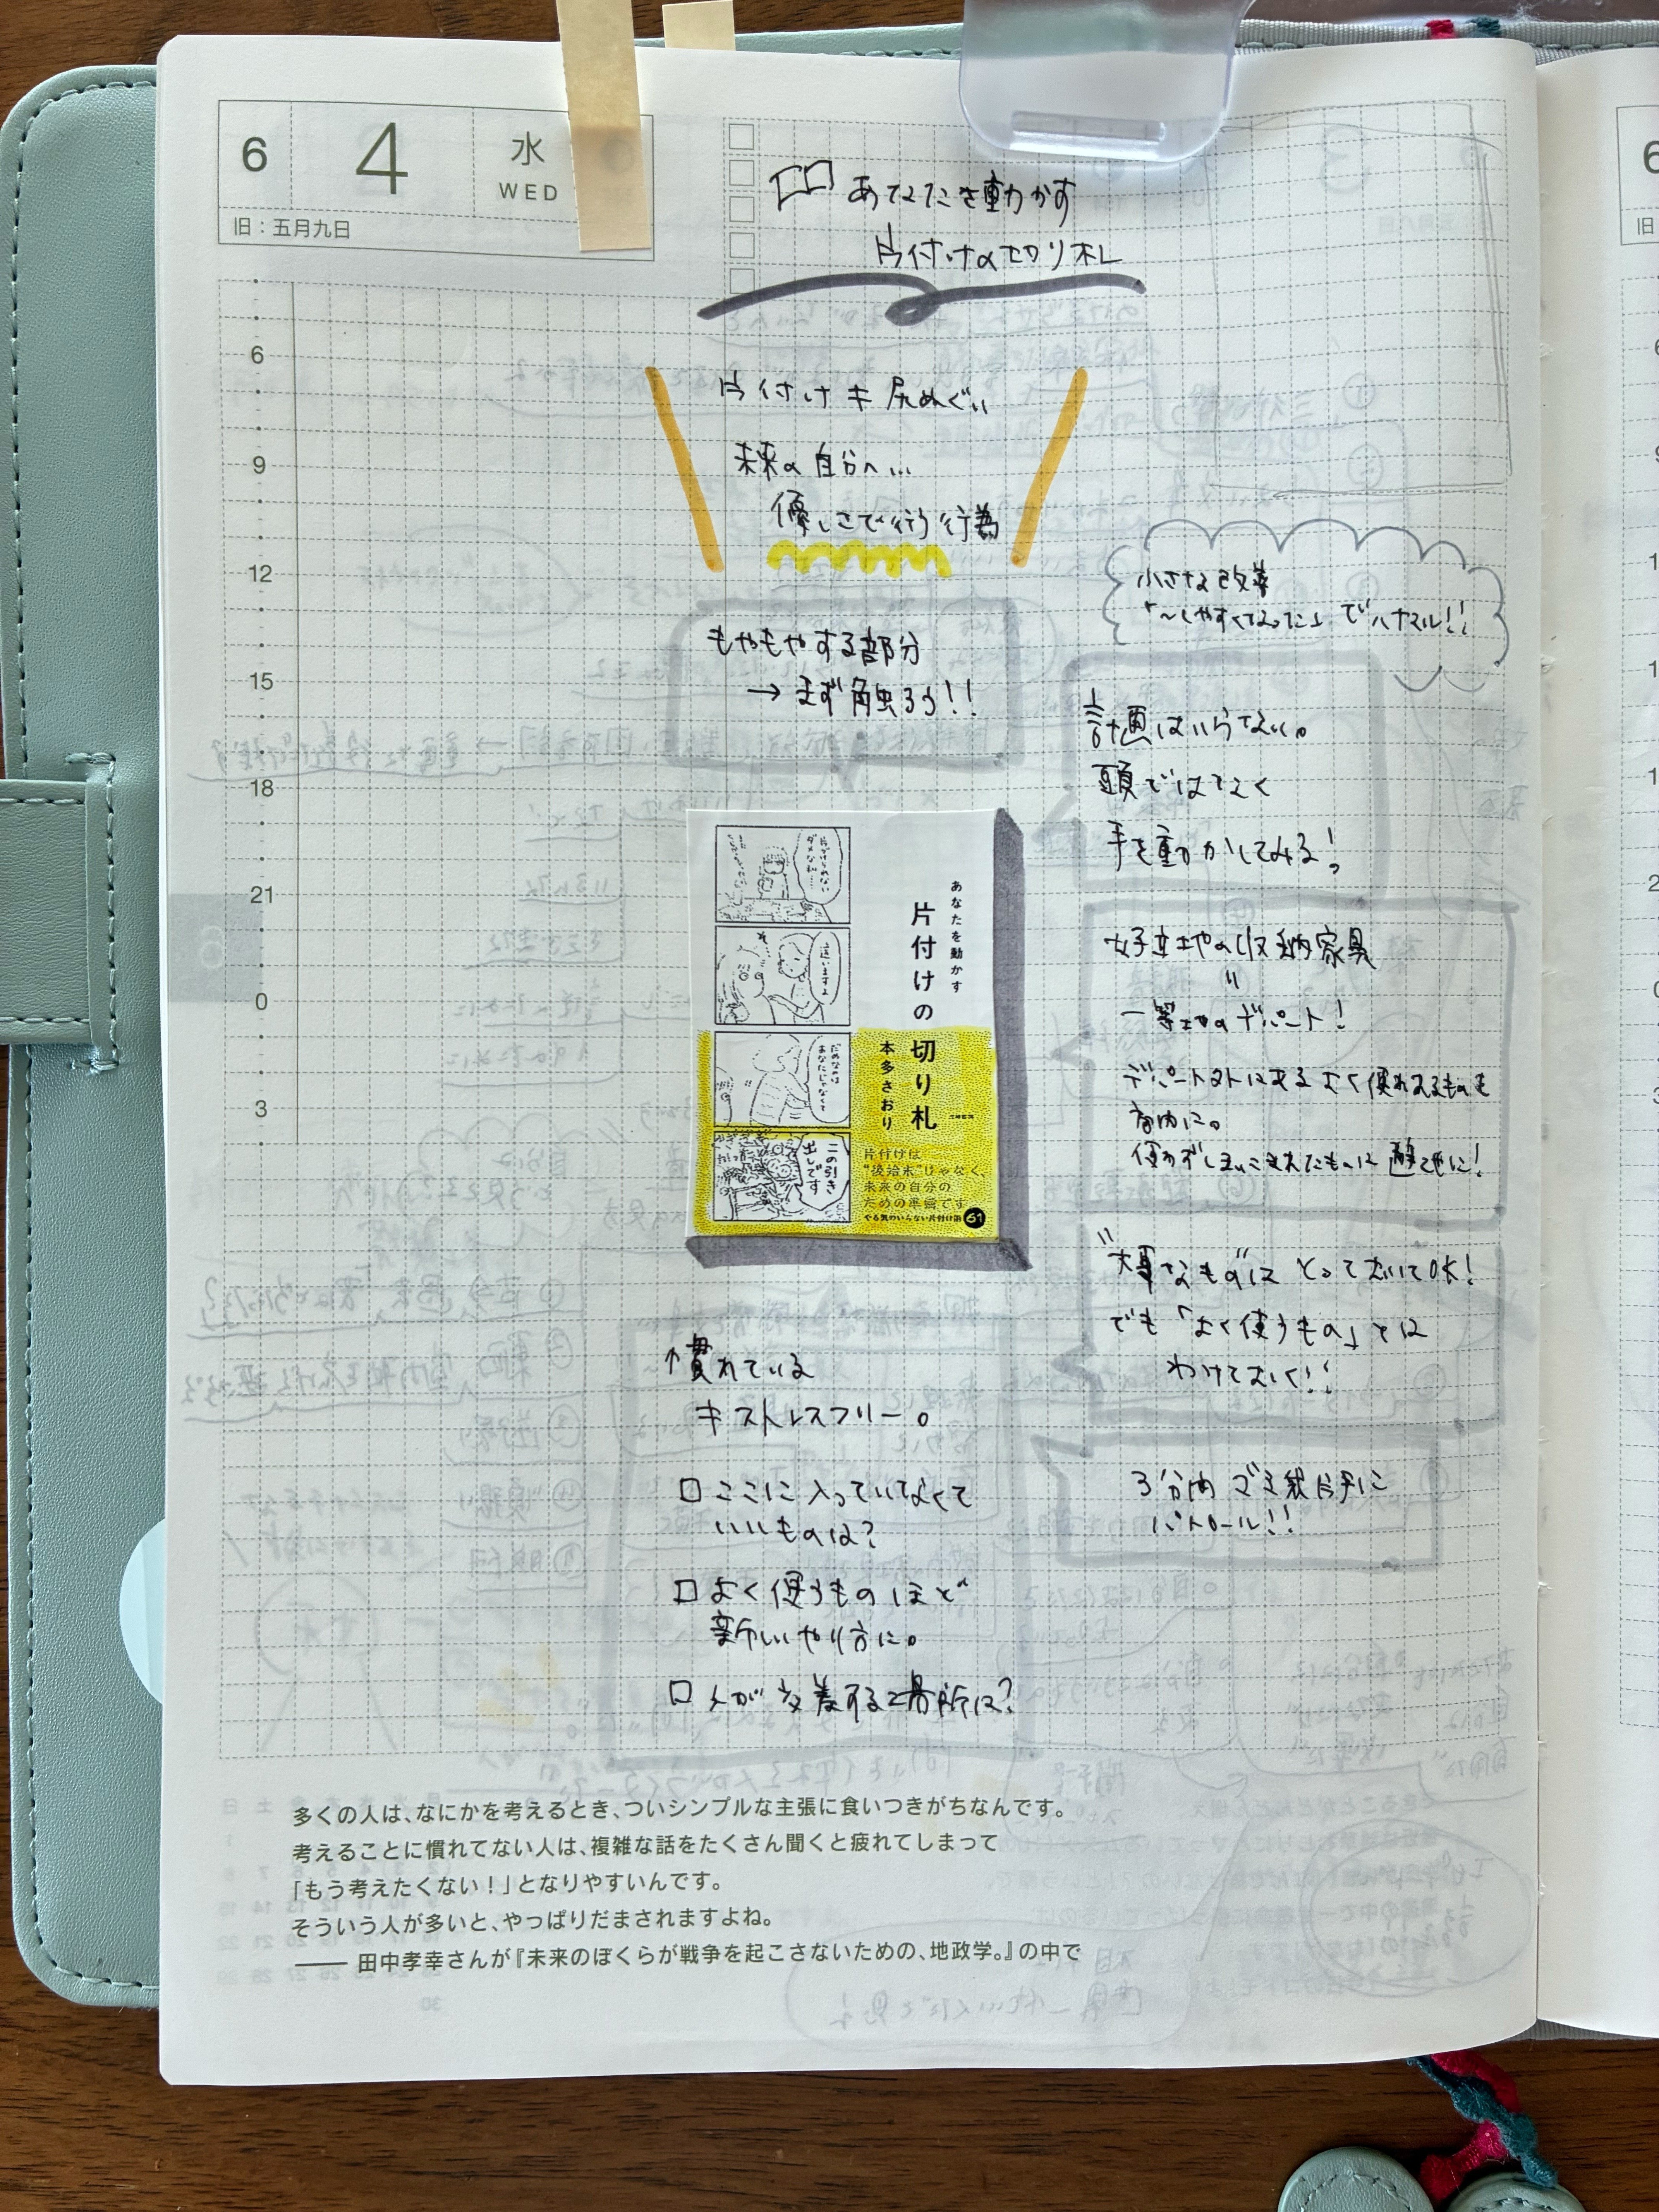 6 4 水
WED
旧：五月九日
あなたを動かす
片付けの切り札
片付け≠尻ぬぐい
未来の自分へ…
優しさで行う行為
もやもやする部分
→まず触ろう!!
小さな改善
「〜しやすくなった」でハナマル!!
計画はいらない。
頭ではなく
手を動かしてみる!
好立地の収納家具
=
一等地のデパート!
デパート外にあるよく使われるものも
使わずしまいこまれたものは
"大事なもの"はとっておいてOK!
でも「よく使うもの」とは
わけておく!!
3分間ゴミ袋片手に
パトロール!!
あなたを動かす
片付けの切り札
本多さおり
この引き
出しです
片付けは
"後始末"じゃなく、
未来の自分の
ための準備です
やる気のいらない片付け術 61
慣れている
≠ストレスフリー。
□ここに入っていなくて
いいものは?
□よく使うものほど
新しいやり方に。
□人が交差する場所は?
6
9
12
15
18
21
0
3
多くの人は、なにかを考えるとき、ついシンプルな主張に食いつきがちなんです。
考えることに慣れてない人は、複雑な話をたくさん聞くと疲れてしまって
「もう考えたくない！」となりやすいんです。
そういう人が多いと、やっぱりだまされますよね。
—— 田中孝幸さんが『未来のぼくらが戦争を起こさないための、地政学。』の中で